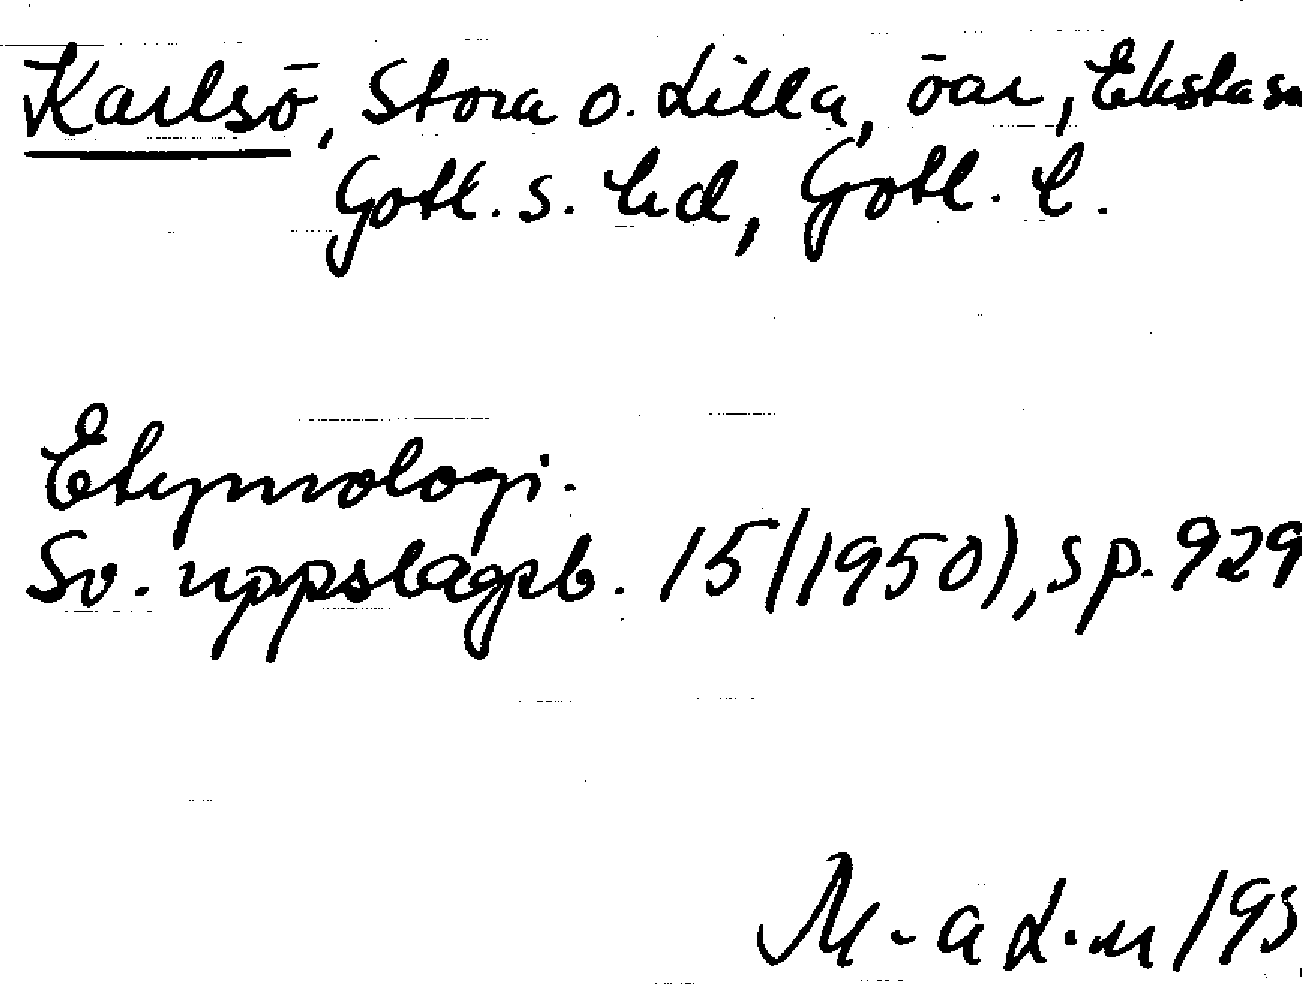 Karlsö, Stora o. Lilla, öar, Eksta sn
Gotl. s. hd, Gotl. l.
Etymologi.
Sv. uppslagsb. 15 (1950), sp. 929
M-a L-m 195